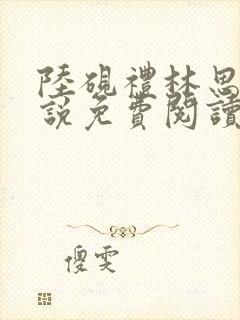 陸硯禮林思
說免費閱讀
傻雯